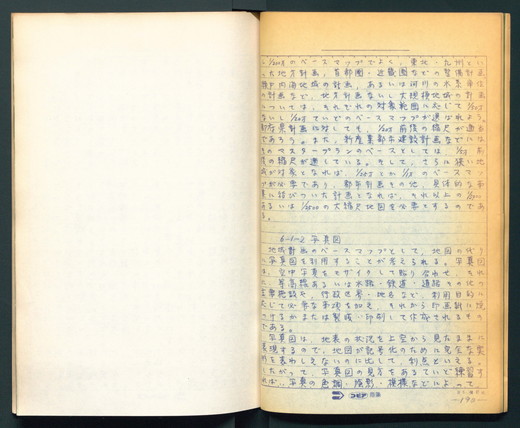 1/200万のベースマップでよく、東北・九州とい
った地方計画、首都圏・近畿圏などの整備計画
瀬戸内海地域の計画、あるいは河川の水系単位
の計画など、地方計画ないし大規模地域の計画
については、それぞれの対象範囲に応じて
ないし ていどのベースマップが選ばれよう。
府県計画に対しても、 前後の縮尺が適当
であろう。また、新産業都市建設計画などにな
るのマスタープランのベースとしては 前
後の縮尺が適している。そして、さらに狭い地
域が対象となれば、 のベースマッ
プが必要であり、都市計画その他、具体的な事
業に結びついた計画となれば、それ以上の
あるいは の大縮尺地図を必要とするのであ
る。
6-1-2 写真図
地域計画のベースマップとして、地図の代り
に写真図を利用することが考えられる。写真図
は、空中写真をモザイクして貼り合わせ、それ
に、等高線あるいは水路・鉄道・道路その他の
主要施設や、行政区界・地名など、利用目的に
応じて必要な事項を加え、それから印画紙に焼
つけるかまたは製版・印刷して作成されるもの
である。
写真図は、地表の状況を上空から見たままに
表現するので、地図が記号化のために完全な実
形を表わしえないのに比して、利点といえる。
したがって、写真図の見方をあるていど練習す
れば、写真の色調・陰影・模様などによって、
コクヨ
—190—